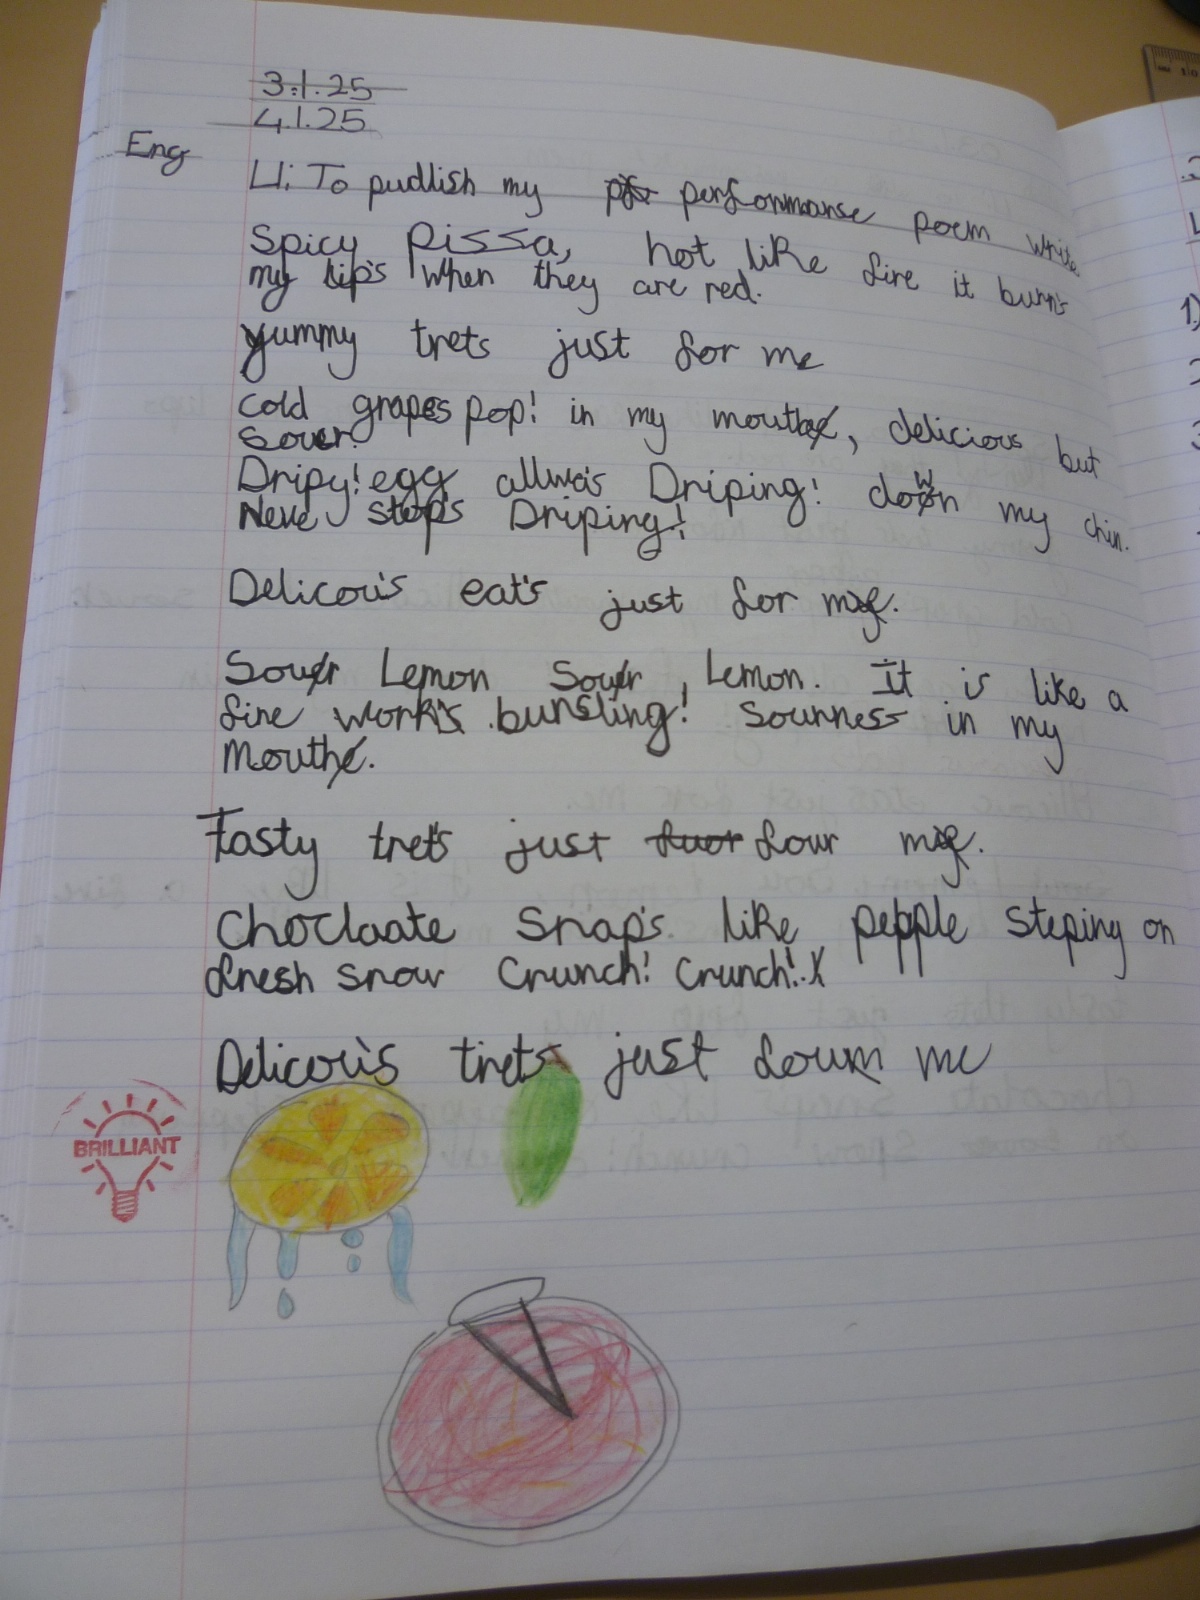 3.1.25
4.1.25
Eng
LI: To pudlish my performanse poem write
Spicy pissa, hot like fire it burn's
my lip's when they are red.
Yummy trets just for me
cold grapes pop! in my mouth, delicious but
souer.
Dripy! egg allwa's Driping! down my chin.
Neve stop's Driping!
Delicou's eat's just for me.
Sour Lemon Sour Lemon. It is like a
fire work's bursting! sourness in my
Mouth.
Tasty tret's just four me.
Choclaate snap's like pepple steping on
fresh snow Crunch! Crunch!
Delicou's trets just foum me
BRILLIANT
1)